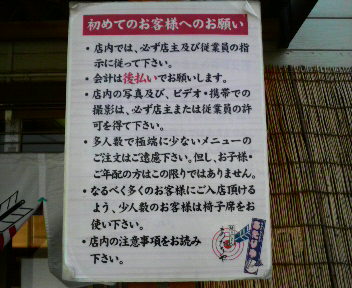 初めてのお客様へのお願い
・店内では、必ず店主及び従業員の指
示に従って下さい。
・会計は後払いでお願いします。
・店内の写真及び、ビデオ・携帯での
撮影は、必ず店主または従業員の許
可を得て下さい。
・多人数で極端に少ないメニューの
ご注文はご遠慮下さい。但し、お子様・
ご年配の方はこの限りではありません。
・なるべく多くのお客様にご入店頂ける
よう、少人数のお客様は椅子席をお
使い下さい。
・店内の注意事項をお読み
下さい。